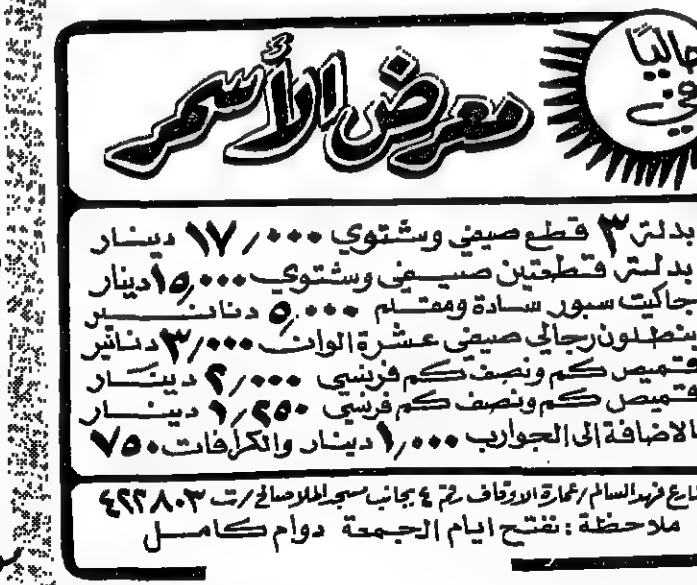 حاليًا
في
معرض الأسمر
بدلة ٣ قطع صيفي وشتوي ١٧/٠٠٠ دينار
بدلة قطعتين صيفي وشتوي ١٥,٠٠٠ دينار
جاكيت سبور سادة ومقلم ٥,٠٠٠ دنانير
بنطلون رجالي صيفي عشرة الوان ٣/٠٠٠ دنانير
قميص كم ونصف كم فرنسي ٢/٠٠٠ دينار
قميص كم ونصف كم فرنسي ١/٢٥٠ دينار
بالاضافة الى الجوارب ١/٠٠٠ دينار والكرافات ٧٥٠
شارع فهد السالم / عمارة الاوقاف رقم ٤ بجانب مسجد الملا صالح / ت ٤٢٢٨٠٣
ملاحظة : نفتح ايام الجمعة دوام كامل